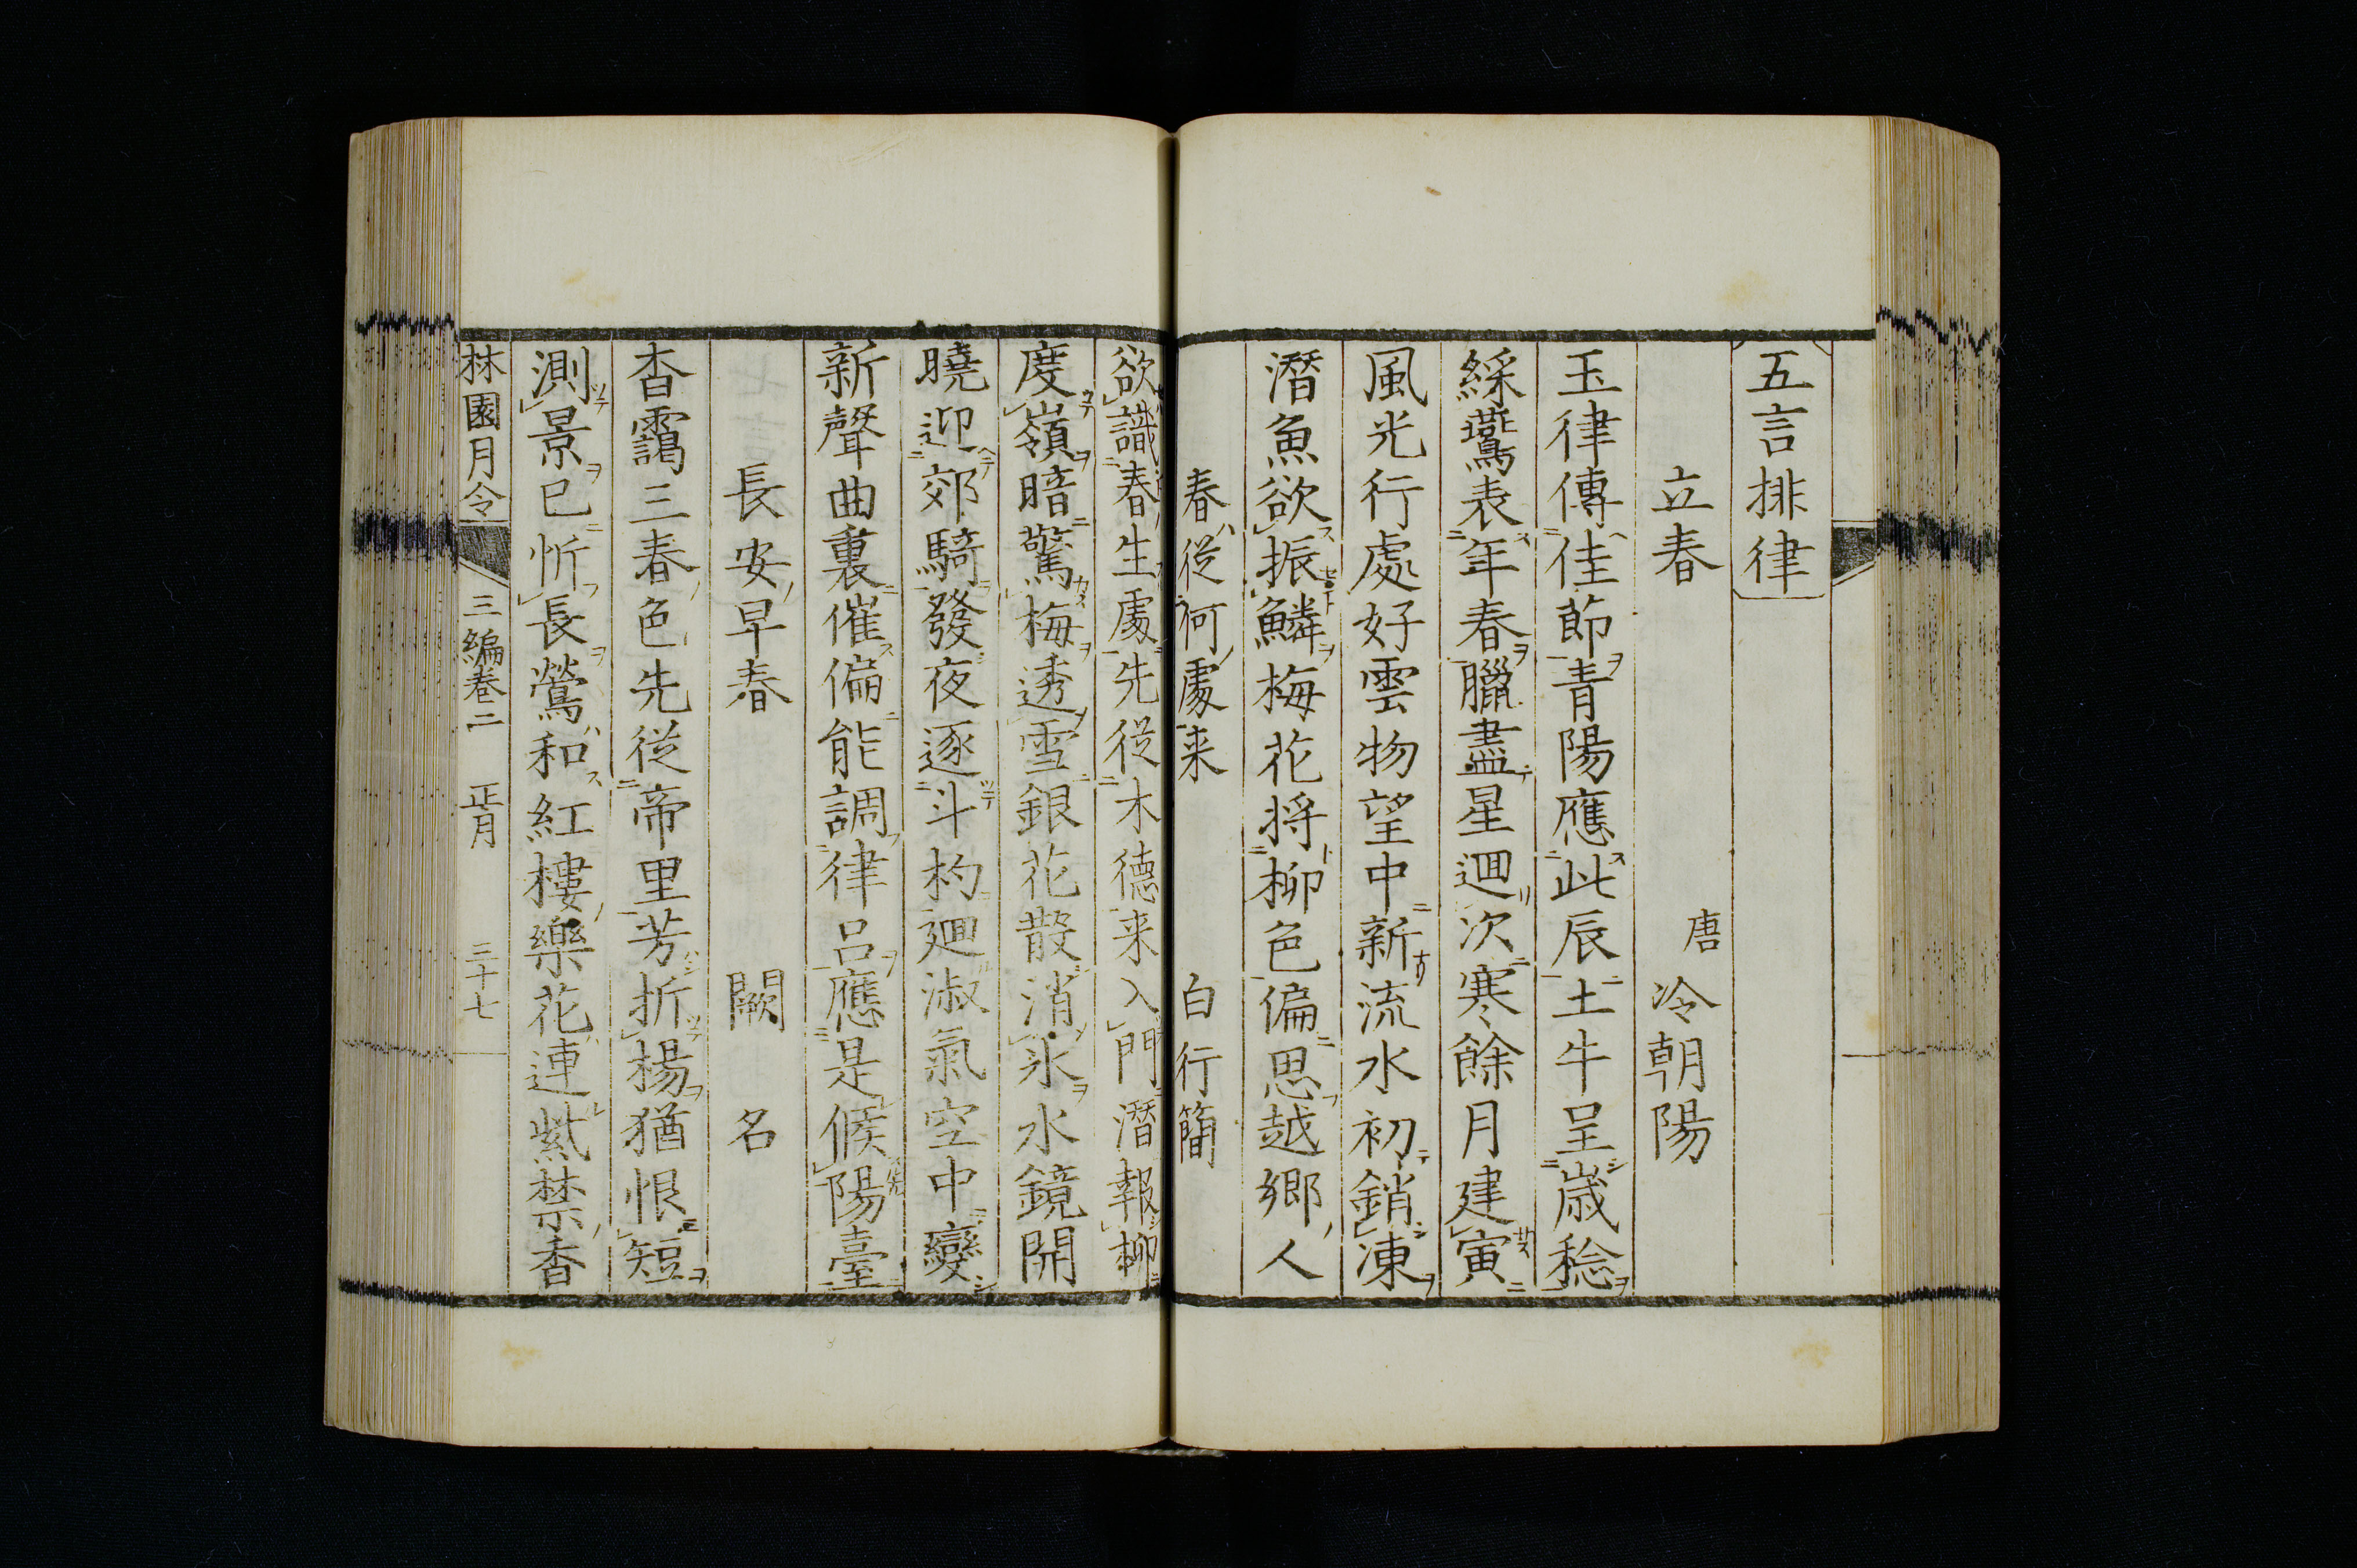 五言排律
立春
唐 冷朝陽
玉律傳佳節青陽應此辰土牛呈歳稔
綵鷰表年春臘盡星迴次寒餘月建寅
風光行處好雲物望中新流水初銷凍
潛魚欲振鱗梅花将柳色偏思越郷人
春從何處来 白行簡
欲識春生處先從木德来入門潛報柳
度嶺暗驚梅透雪銀花散消氷水鏡開
曉迎郊騎發夜逐斗杓迴淑氣空中變
新聲曲裏催偏能調律呂應是候陽臺
長安早春 闕名
杳靄三春色先從帝里芳折楊猶恨短
測景已忻長鶯和紅樓樂花連紫禁香
林園月令 三編巻二 正月 三十七